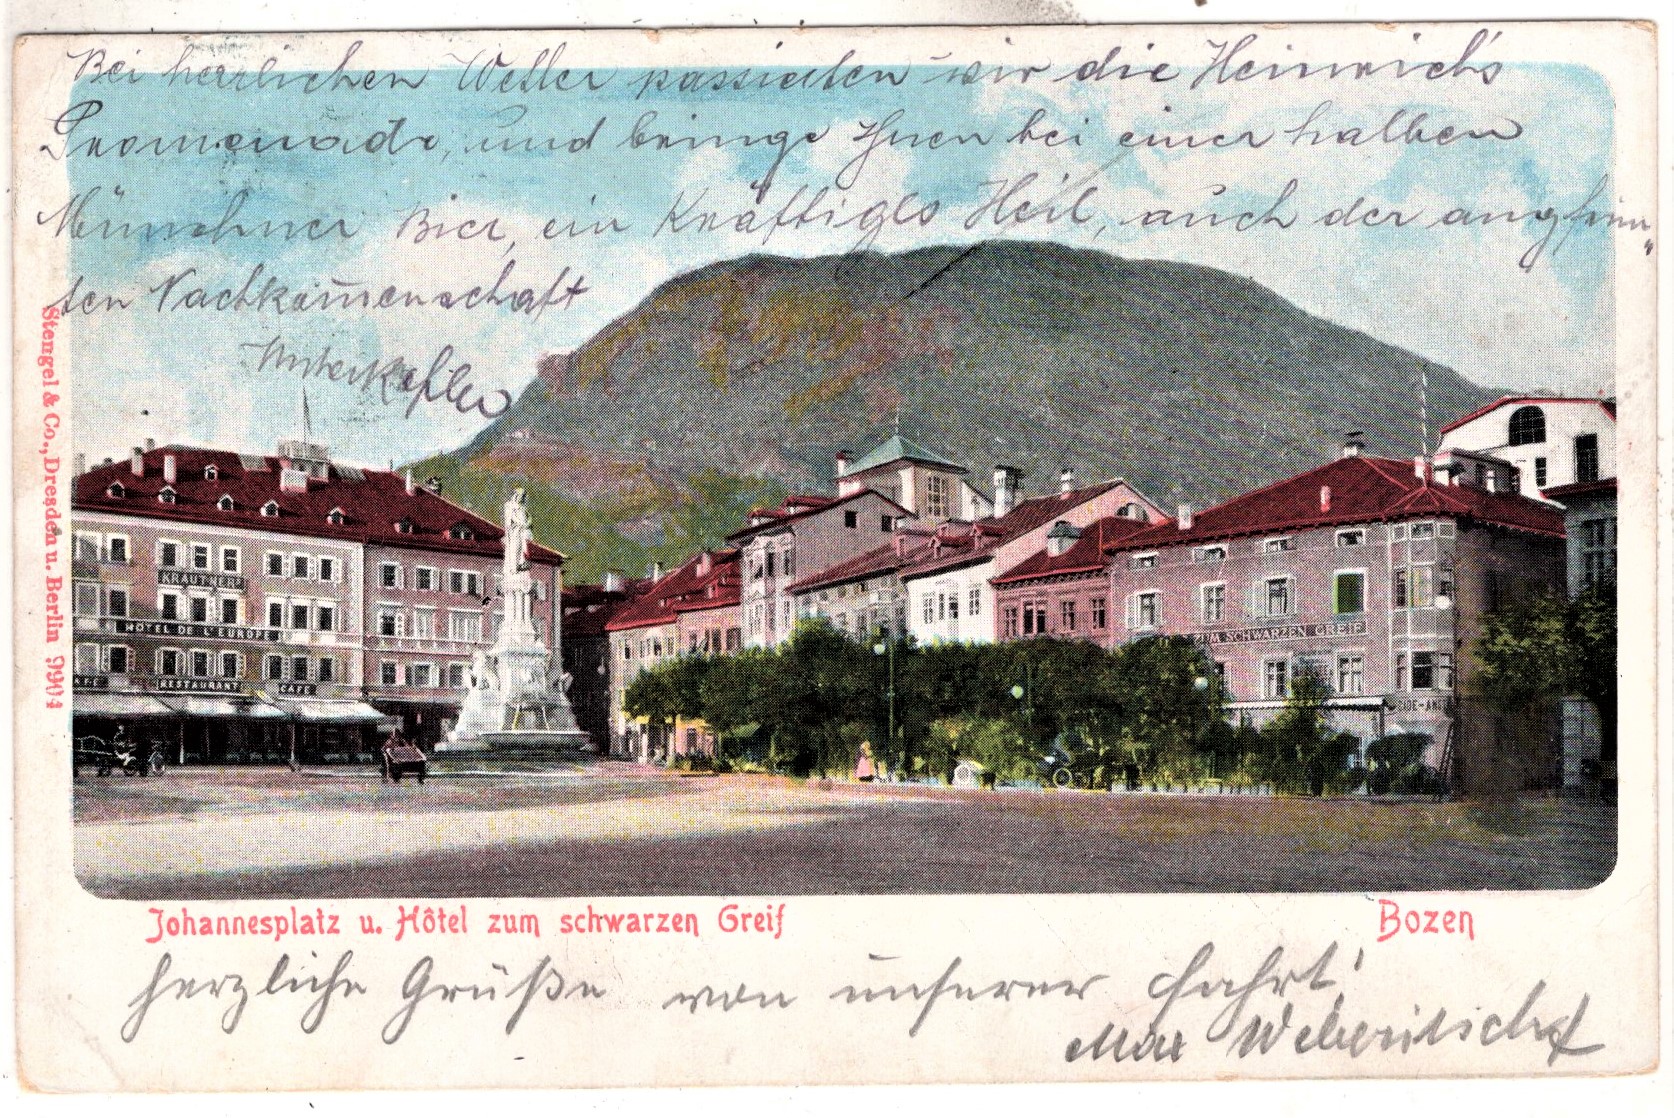 Bei herrlichen Wetter passierten wir die Heinrich's
Promenade, und bringe Ihnen bei einer halben
Münchner Bier, ein Kräftiges Heil, auch der
ten Nachkom̄enschaft
Stengel & Co., Dresden u. Berlin 9904
KRAUTNER
HÔTEL DE L'EUROPE
RESTAURANT
CAFÉ
ZUM SCHWARZEN GREIF
Johannesplatz u. Hôtel zum schwarzen Greif
Bozen
herzliche Grüße von unserer Fahrt!
Max